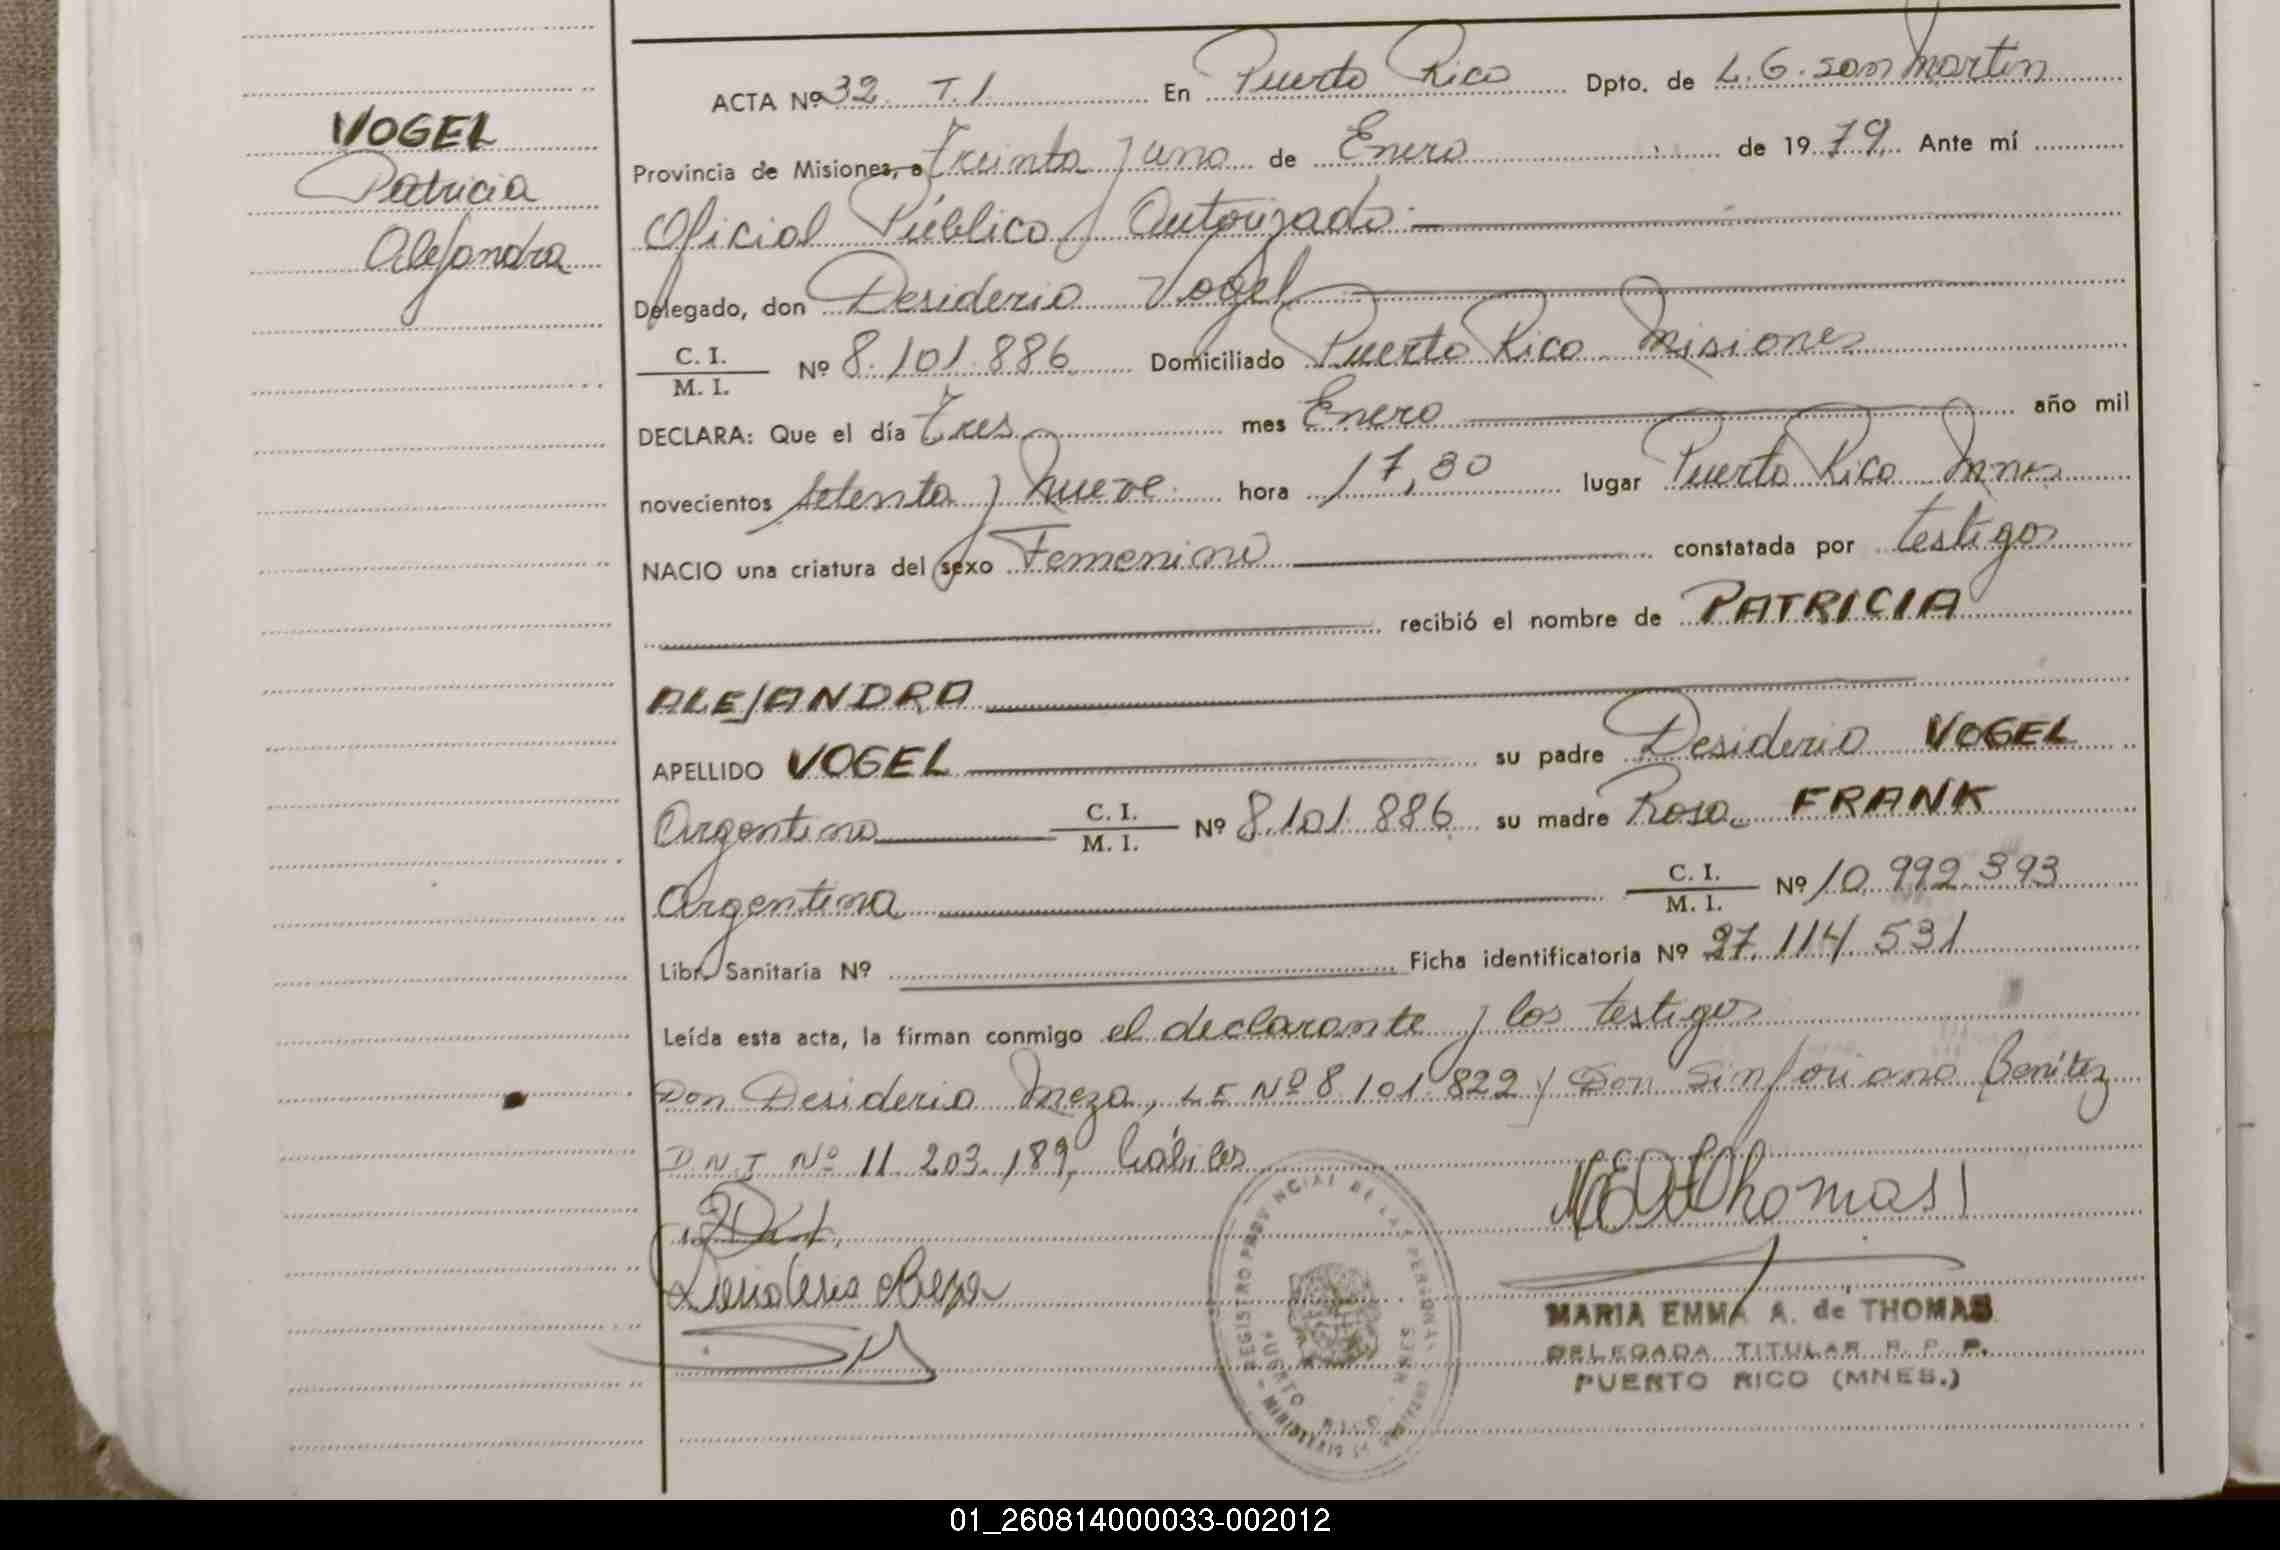 VOGEL
Patricia
Alejandra
ACTA Nº 32 T.1 En Puerto Rico Dpto. de L.G. San Martin
Provincia de Misiones, a treinta y uno de Enero de 1979. Ante mí
Oficial Público Autorizado.
Delegado, don Desiderio Vogel
C. I.
M. I.
Nº 8.101.886 Domiciliado Puerto Rico Misiones
DECLARA: Que el día Tres mes Enero año mil
novecientos setenta y nueve hora 17,30 lugar Puerto Rico Mnes
NACIO una criatura del sexo Femenino constatada por testigos
recibió el nombre de PATRICIA
ALEJANDRA
APELLIDO VOGEL su padre Desiderio VOGEL
Argentino C. I.
M. I.
Nº 8.101.886 su madre Rosa FRANK
Argentina C. I.
M. I.
Nº 10.992.393
Libr. Sanitaria Nº Ficha identificatoria Nº 27.114.531
Leída esta acta, la firman conmigo el declarante y los testigos
Don Desiderio Meza, LE Nº 8.101.822 y Don Sinforiano Benítez
D.N.I Nº 11.203.189, hábiles
Desiderio Meza
Thomas
REGISTRO PROVINCIAL DE LAS PERSONAS
PUERTO RICO
MARIA EMMA A. de THOMAS
DELEGADA TITULAR R. P. P.
PUERTO RICO (MNES.)
01_260814000033-002012